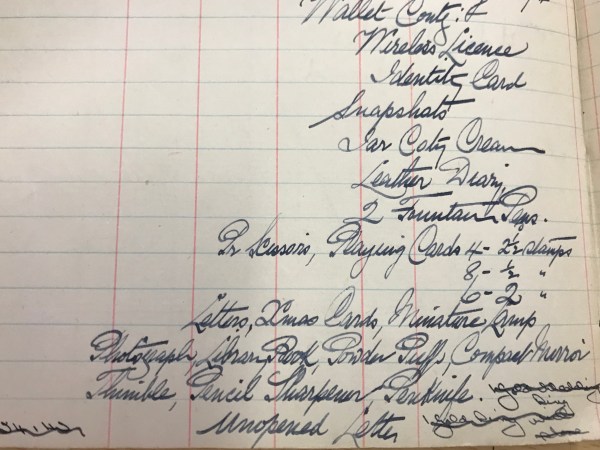 Wallet Contg: &
Wireless Licence
Identity Card
Snapshots
Jar Coty Cream
Leather Diary,
2 Fountain Pens.
Pr Scissors, Playing Cards 4 - 2½ stamps
8 - ½ "
6 - 2 "
Letters, X'mas Cards, Miniature Lamp
Photograph, Library Book, Powder Puffs, Compact Mirror
Thimble, Pencil Sharpener, Penknife.
Unopened Letter